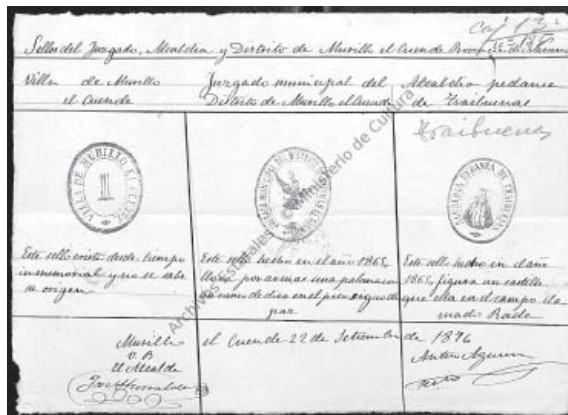 Sellos del Juzgado, Alcaldia y Distrito de Murillo el Cuende Provincia de
Villa de Murillo
el Cuende
Juzgado municipal del
Distrito de Murillo el Cuende
Alcaldia pedanea
de Traibuenas
Traibuenas
VILLA DE MURILLO EL CUENDE
ALCALDIA PEDANEA DE TRAIBUENAS
Este sello existe desde tiempo
inmemorial y no se sabe
su origen
Este sello hecho en el año 1865,
por armas una paloma con
un ramo de olivo en el pico signo de
paz
Este sello hecho en el año
1865, figura un castillo
que está en el campo lla
mado Rada
Murillo el Cuende 22 de Setiembre de 1876
V. B.
El Alcalde
Archivos Estatales Ministerio de Cultura